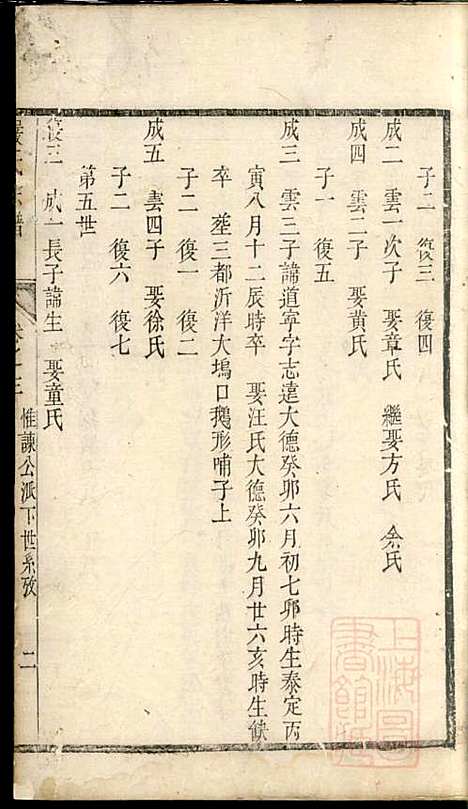 子二　復三　復四
成二　雲一次子　娶章氏　繼娶方氏　余氏
成四　雲二子　娶黄氏
子一　復五
成三　雲三子諱道寧字志遠大德癸卯六月初七卯時生泰定丙
寅八月十二辰時卒　娶汪氏大德癸卯九月廿六亥時生缺
卒　塟三都沂洋大塢口鵝形哺子上
子二　復一　復二
成五　雲四子　娶徐氏
子二　復六　復七
第五世
復三　成一長子諱生　娶童氏
惟諫公派下世系攷　二
上海圖書館藏